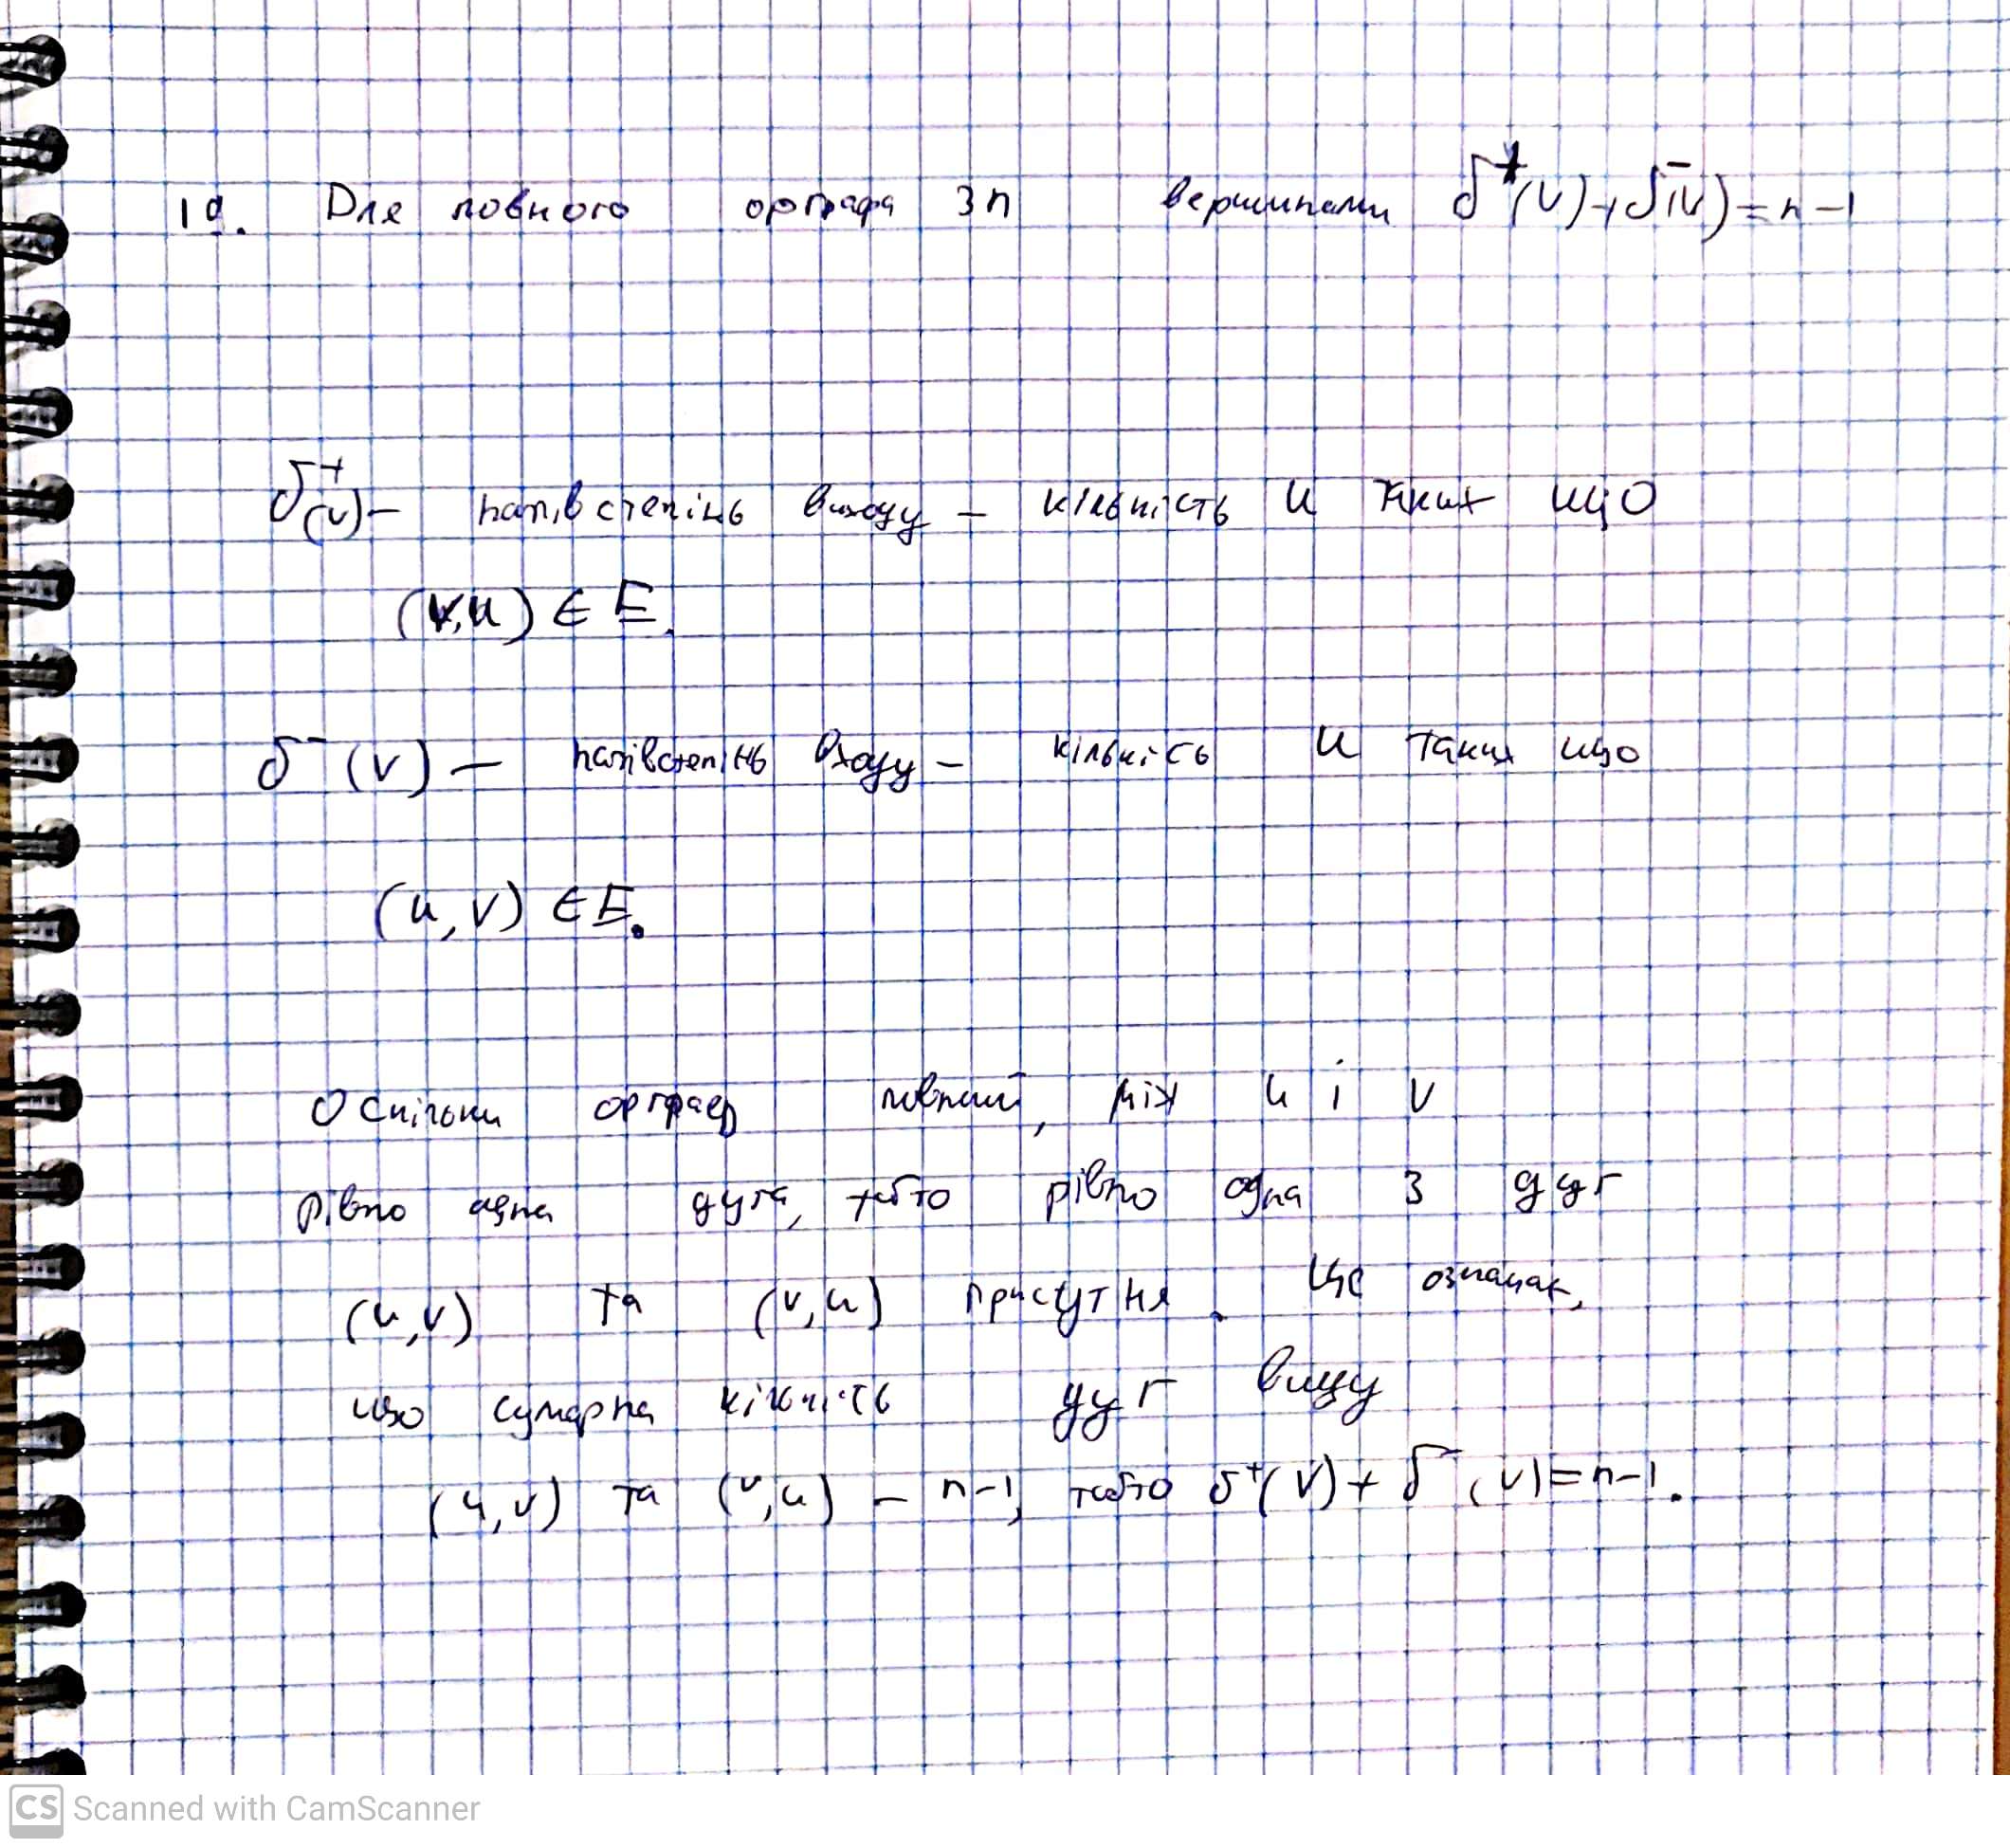 1d. Для повного орграфа з n вершинами δ⁺(v)+δ⁻(v)=n-1
δ⁺(v) – напівстепінь виходу – кількість u таких що
(v,u) ∈ E.
δ⁻(v) – напівстепінь входу – кількість u таких що
(u,v) ∈ E.
Оскільки орграф повний, між u і v
рівно одна дуга, тобто рівно одна з дуг
(u,v) та (v,u) присутня. Це означає,
що сумарна кількість дуг виду
(u,v) та (v,u) – n-1, тобто δ⁺(v)+δ⁻(v)=n-1.
CS Scanned with CamScanner